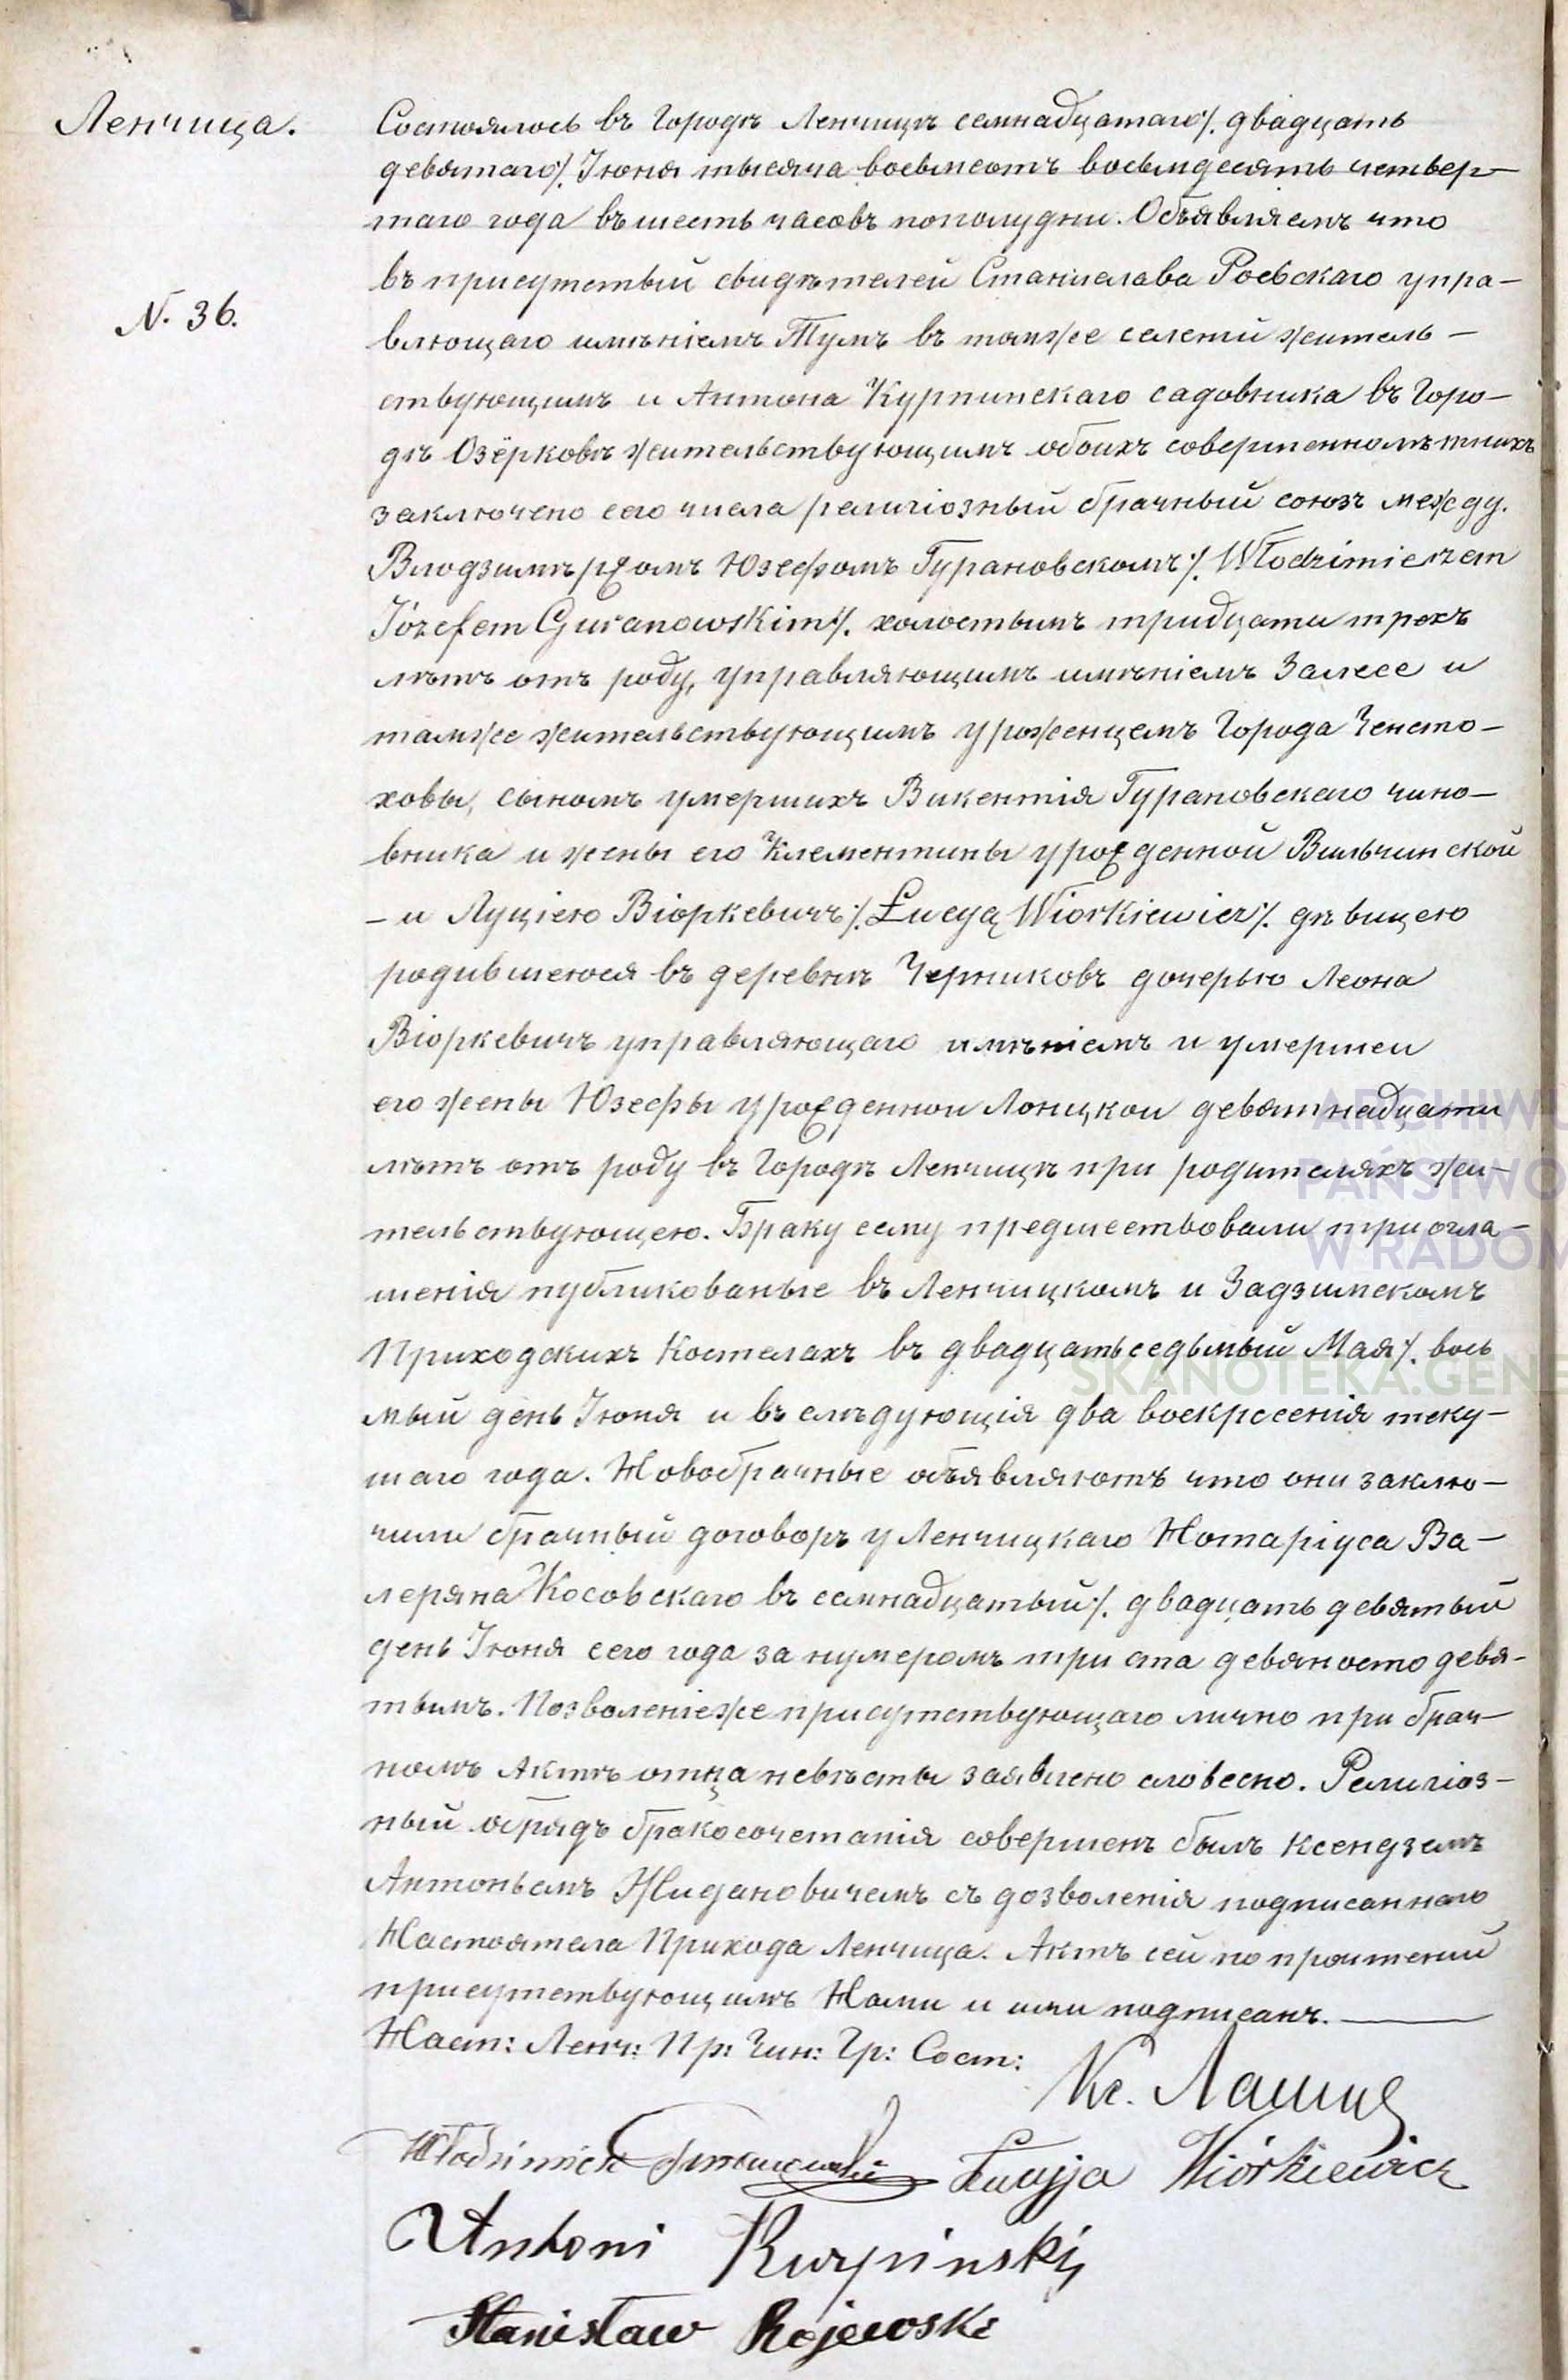 Ленчица.
Состоялось въ Городѣ Ленчицѣ семнадцатаго/. двадцать
девятаго/. Іюня тысяча восьмсотъ восьмдесятъ четвер—
таго года въ шесть часовъ пополудни. Объявляемъ что
N. 36.
въ присутствій свидѣтелей Станислава Роевскаго упра—
вляющаго имѣніемъ Тумъ въ томже селеніи житель—
ствующимъ и Антона Курпинскаго садовника въ Горо—
дѣ Озёрковѣ жительствующимъ обоихъ совершеннолѣтнихъ
заключено сего числа религіозный брачный союзъ между.
Влодзимѣржомъ Юзефомъ Гурановскомъ/. Włodzimierzem
Józefem Guranowskim/. холостымъ тридцати трехъ
лѣтъ отъ роду, управляющимъ имѣніемъ Залесе и
тамже жительствующимъ уроженцемъ Города Ченсто—
ховы, сыномъ умершихъ Викентія Гурановскаго чино—
вника и жены его Клементины урожденной Вильчинской
— и Луціею Віоркевичъ/. Łucyą Wiorkiewicz/. дѣвицею
родившеюся въ деревнѣ Черниковъ дочерью Леона
Віоркевичъ управляющаго имѣніемъ и умершеи
его жены Юзефы урожденнои Лонцкои девятнадцати
лѣтъ отъ роду въ Городѣ Ленчицѣ при родителяхъ жи—
тельствующею. Браку сему предшествовали три огла—
шенія публикованые въ Ленчицкомъ и Задзимскомъ
Приходскихъ Костелахъ въ двадцатьседьмый Мая/. вось
мый день Іюня и въ слѣдующія два воскресенія теку—
щаго года. Новобрачные объявляютъ что они заклю—
чили брачный договоръ у Ленчицкаго Нотаріуса Ва—
леряна Косовскаго въ семнадцатый/. двадцать девятый
день Іюня сего года за нумеромъ три ста девяносто девя—
тымъ. Позволеніеже присутствующаго лично при брач—
номъ Актѣ отца невѣсты заявлено словесно. Религіоз—
ный обрядъ бракосочетанія совершенъ былъ ксендземъ
Антоньемъ Жидановичемъ съ дозволенія подписаннаго
Настоятеля Прихода Ленчица. Актъ сей по прочтеній
присутствующимъ Нами и ими подписанъ.
Наст: Ленч: Пр: Чин: Гр: Сост:
Кс.
Włodzimierz Guranowski Łucyja Wiórkiewicz
Antoni Kurpinski
Stanisław Rojewski
ARCHIWU
PAŃSTWO
W RADOM
SKANOTEKA.GENE